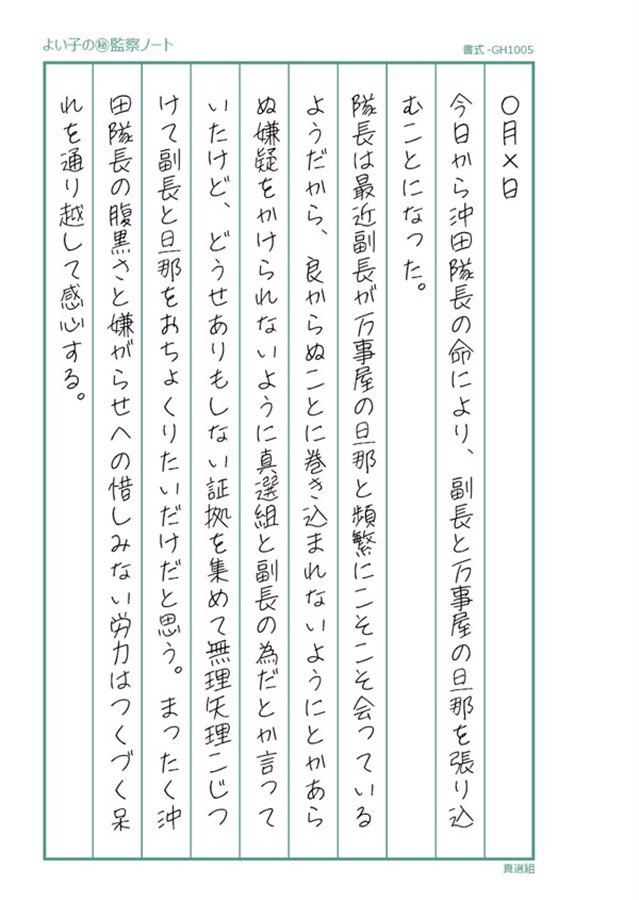 よい子の㊙監察ノート
書式-GH1005
〇月×日
今日から沖田隊長の命により、副長と万事屋の旦那を張り込
むことになった。
隊長は最近副長が万事屋の旦那と頻繁にこそこそ会っている
ようだから、良からぬことに巻き込まれないようにとかあら
ぬ嫌疑をかけられないように真選組と副長の為だとか言って
いたけど、どうせありもしない証拠を集めて無理矢理こじつ
けて副長と旦那をおちょくりたいだけだと思う。まったく沖
田隊長の腹黒さと嫌がらせへの惜しみない労力はつくづく呆
れを通り越して感心する。
真選組